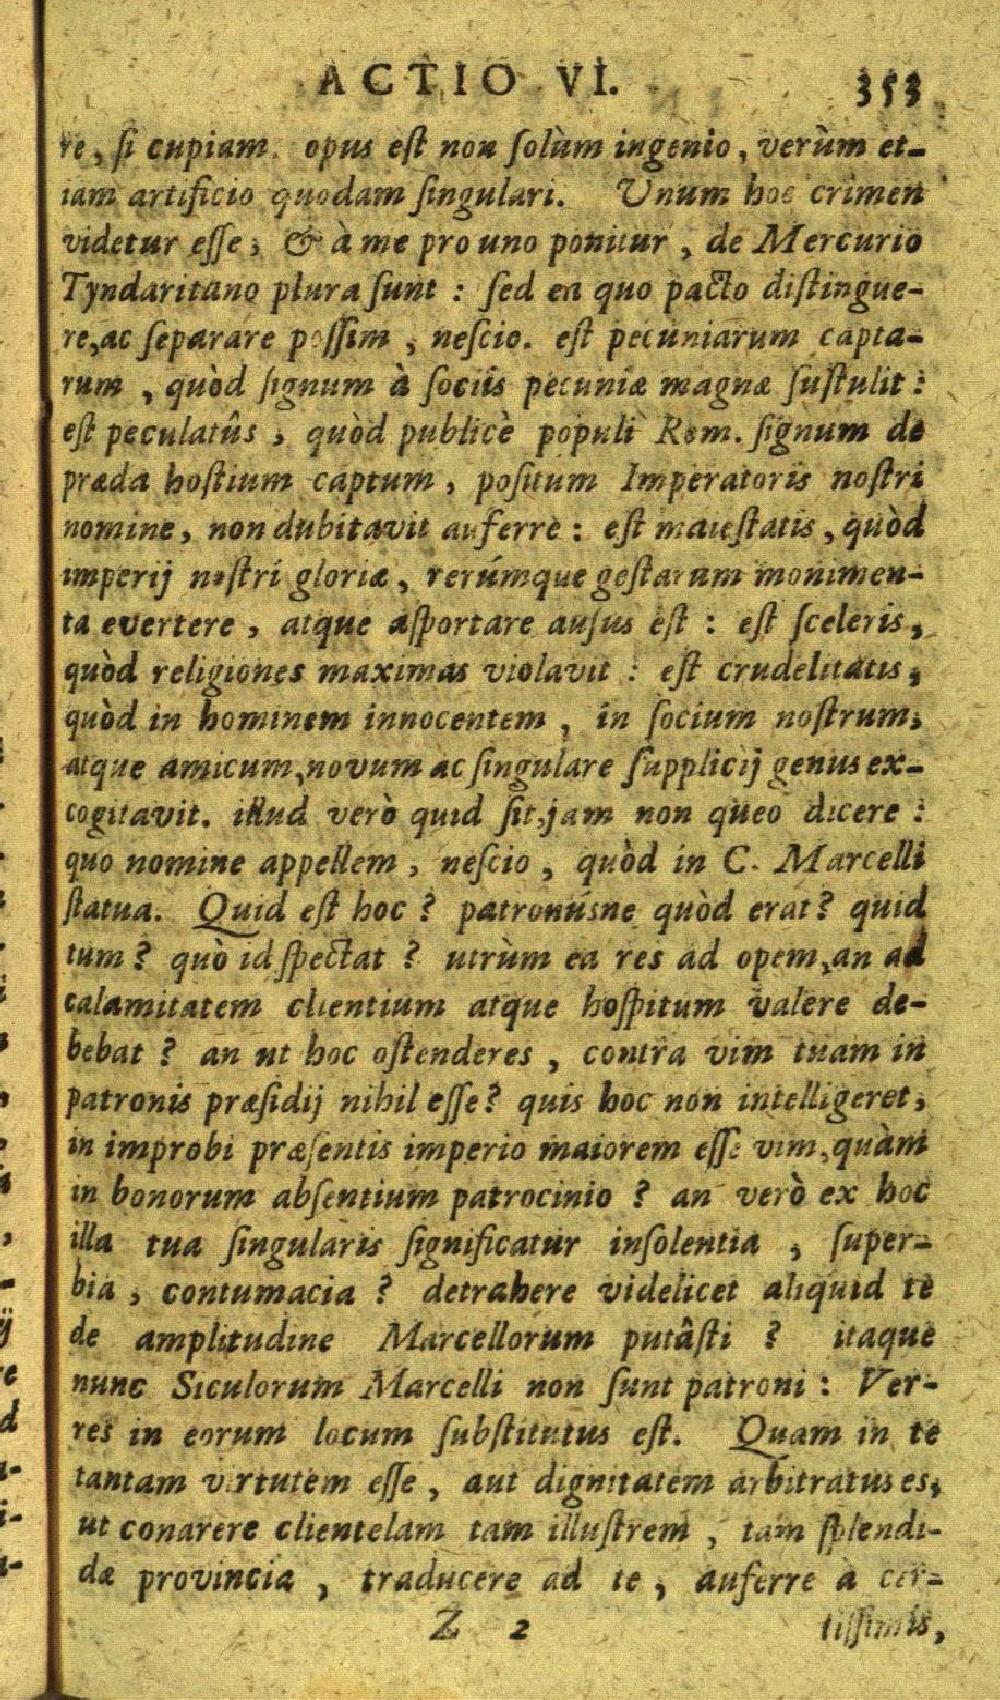 ACTIO VI. 353
re, ſi cupiam. opus eſt non ſolùm ingenio, verùm et-
iam artificio quodam ſingulari. Unum hoc crimen
videtur eſſe; & à me pro uno ponitur, de Mercurio
Tyndaritano plura ſunt: ſed ea quo pacto diſtingue-
re, ac ſeparare poſſim, neſcio. eſt pecuniarum capta-
rum, quòd ſignum à ſociis pecuniæ magnæ ſuſtulit:
eſt peculatûs, quòd publicè populi Rom. ſignum de
præda hoſtium captum, poſitum Imperatoris noſtri
nomine, non dubitavit auferre: eſt maieſtatis, quòd
imperij noſtri gloriæ, rerúmque geſtarum monimen-
ta evertere, atque aſportare auſus eſt: eſt ſceleris,
quòd religiones maximas violavit: eſt crudelitatis,
quòd in hominem innocentem, in ſocium noſtrum,
atque amicum, novum ac ſingulare ſupplicij genus ex-
cogitavit. illud verò quid ſit, jam non queo dicere:
quo nomine appellem, neſcio, quòd in C. Marcelli
ſtatua. Quid eſt hoc? patronúsne quòd erat? quid
tum? quò id ſpectat? utrùm ea res ad opem, an ad
calamitatem clientium atque hoſpitum valere de-
bebat? an ut hoc oſtenderes, contra vim tuam in
patronis præſidij nihil eſſe? quis hoc non intelligeret,
in improbi præſentis imperio maiorem eſſe vim, quàm
in bonorum abſentium patrocinio? an verò ex hoc
illa tua ſingularis ſignificatur inſolentia, ſuper-
bia, contumacia? detrahere videlicet aliquid te
de amplitudine Marcellorum putâſti? itaque
nunc Siculorum Marcelli non ſunt patroni: Ver-
res in eorum locum ſubſtitutus eſt. Quam in te
tantam virtutem eſſe, aut dignitatem arbitratus es,
ut conarere clientelam tam illuſtrem, tam ſplendi-
dæ provincia, traducere ad te, auferre à cer-
Z 2 tiſſimis,